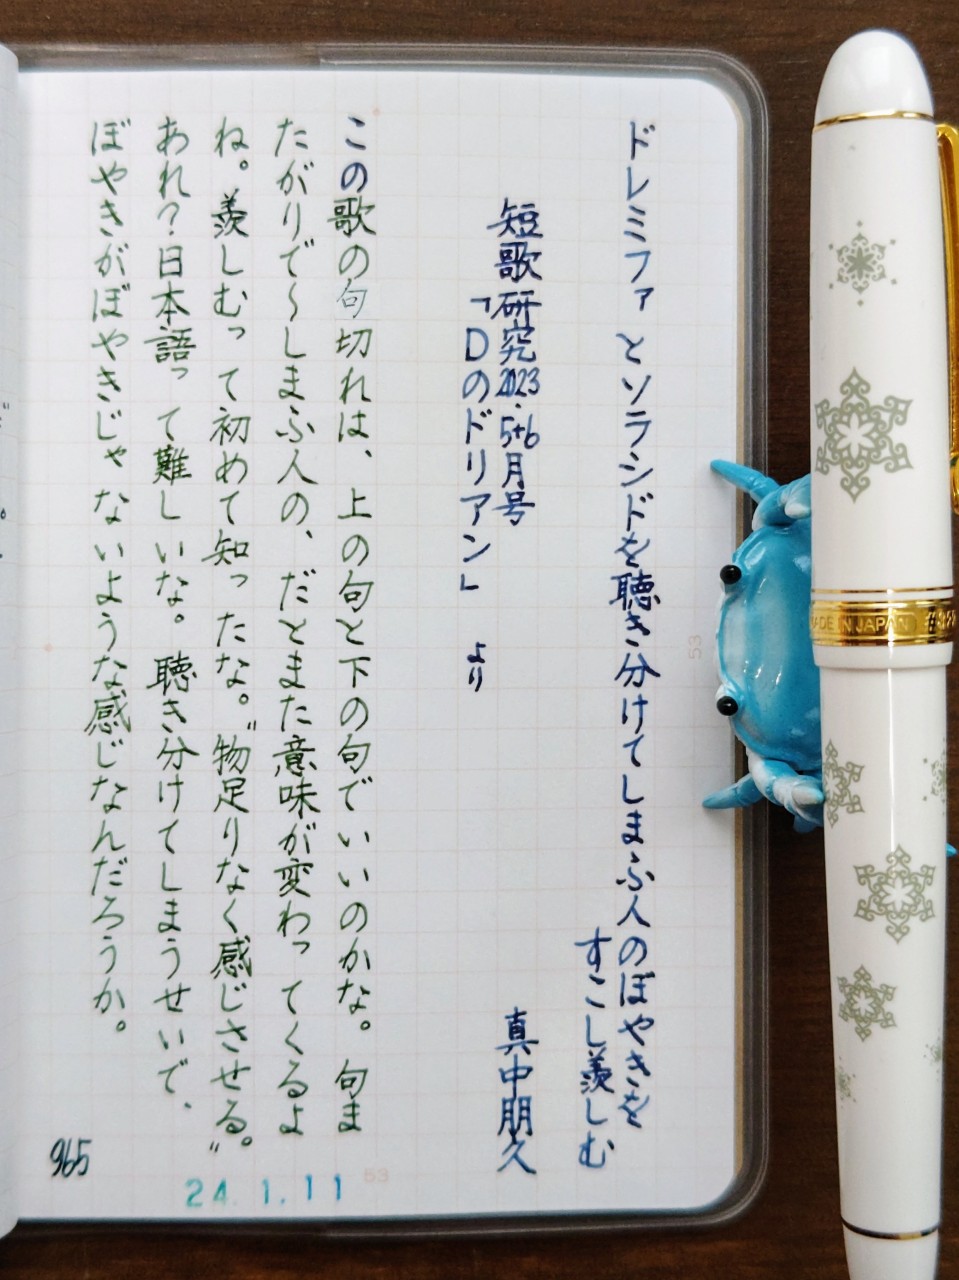 ドレミファとソラシドを聴き分けてしまふ人のぼやきを
すこし羨しむ
短歌研究2023.5+6月号
「Dのドリアン」 より
真中朋久
この歌の句切れは、上の句と下の句でいいのかな。句ま
たがりで〜しまふ人の、だとまた意味が変わってくるよ
ね。羨しむって初めて知ったな。〝物足りなく感じさせる。〟
あれ?日本語って難しいな。聴き分けてしまうせいで、
ぼやきがぼやきじゃないような感じなんだろうか。
965
24.1.11
53
53
MADE IN JAPAN